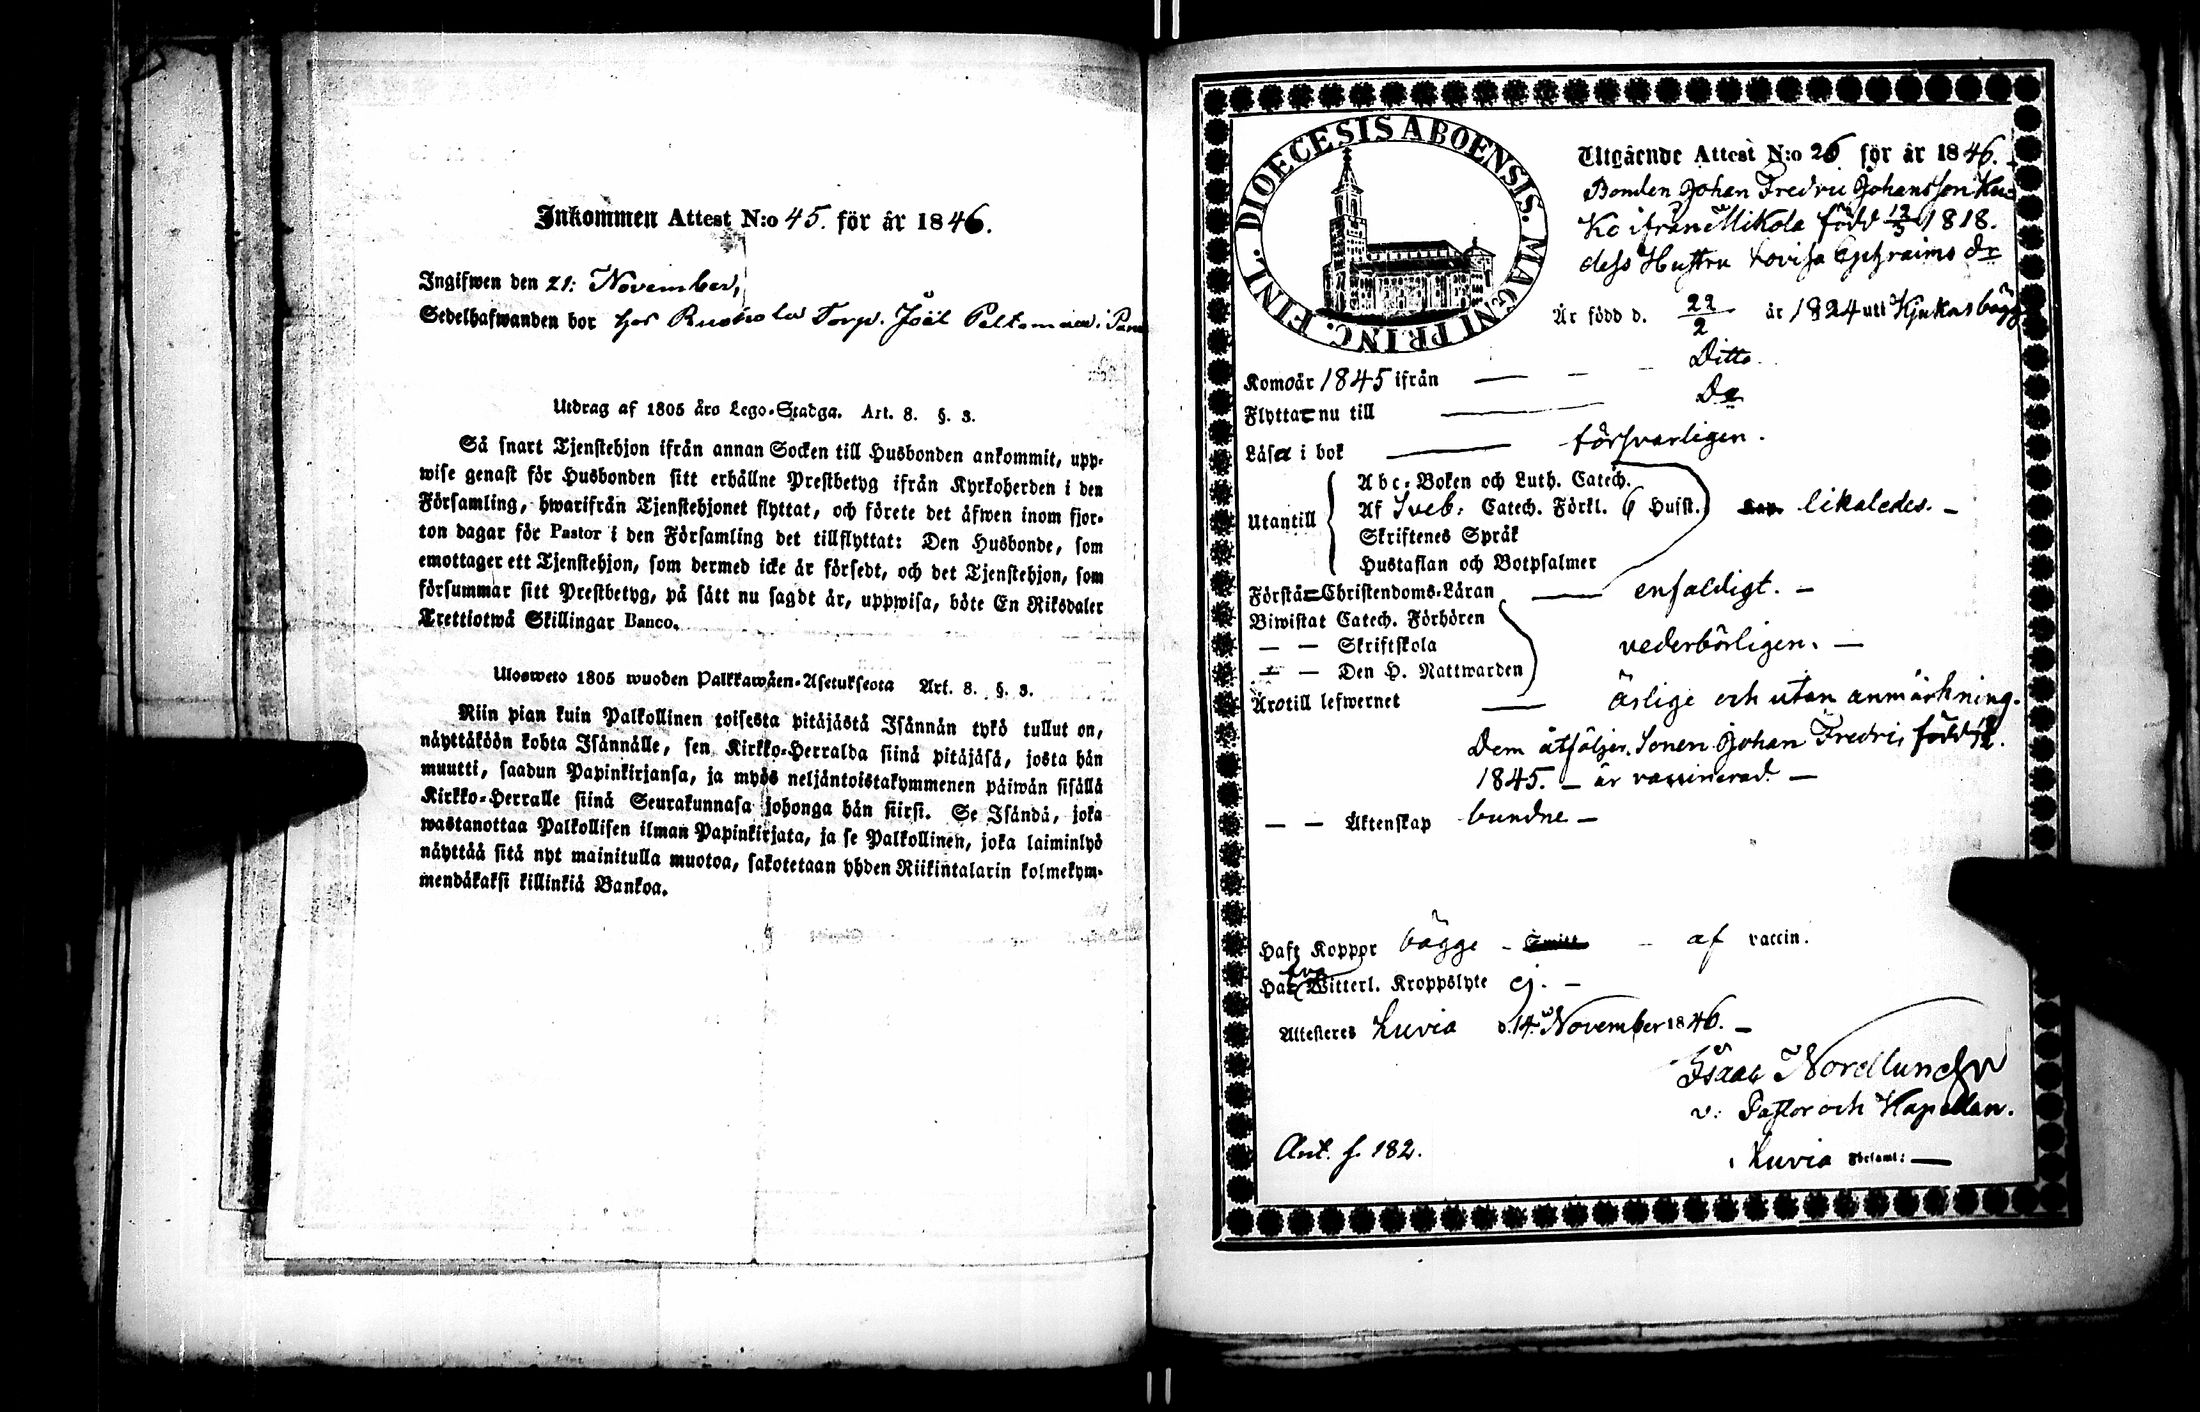 Inkommen Attest N:o 45. för år 1846.
Ingifwen den 21: November,
Sedelhafwanden bor hos Torp. Joel Peltomaa i
Utdrag af 1805 års Lego-Stadga. Art. 8. §. 3.
Så snart Tjenstehjon ifrån annan Socken till Husbonden ankommit, upp-
wise genast för Husbonden sitt erhållne Prestbetyg ifrån Kyrkoherden i den
Församling, hwarifrån Tjenstehjonet flyttat, och förete det äfwen inom fjor-
ton dagar för Pastor i den Församling det tillflyttat: Den Husbonde, som
emottager ett Tjenstehjon, som dermed icke är försedt, och det Tjenstehjon, som
försummar sitt Prestbetyg, på sätt nu sagdt är, uppwisa, böte En Riksdaler
Trettiotwå Skillingar Banco.
Ulosweto 1805 wuoden Palkkawäen-Asetuksesta Art. 8. §. 3.
Niin pian kuin Palkollinen toisesta pitäjästä Isännän tykö tullut on,
näyttäköön kohta Isännälle, sen Kirkko-Herralda siinä pitäjäsä, josta hän
muutti, saadun Papinkirjansa, ja myös neljäntoistakymmenen päiwän sisällä
Kirkko-Herralle siinä Seurakunnasa johonga hän siirsi. Se Isändä, joka
wastanottaa Palkollisen ilman Papinkirjata, ja se Palkollinen, joka laiminlyö
näyttää sitä nyt mainitulla muotoa, sakotetaan yhden Riikintalarin kolmekym-
mendäkaksi killinkiä Bankoa.
FINL. DIOECESIS ABOENSIS. MAGNI PRINC.
Utgående Attest N:o 26 för år 1846.
Bonden Johan Fredric Johansson Hei-
ko ifrån Mikola född 1818.
dess Hustru Lovisa Ephraims dr
Är född d. 22/2 år 1824 utt Kjukasbägge
Komo år 1845 ifrån — — — Ditto.
Flyttar nu till — Do
Läsa i bok — försvarligen.
Abc-Boken och Luth. Catech.
Utantill Af Sveb: Catech. Förkl. 6 Hufst. likaledes. —
Skriftenes Språk
Hustaflan och Botpsalmer
Förstå Christendoms-Läran — enfaldigt. —
Biwistat Catech. Förhören
— — Skriftskola vederbörligen. —
— — Den H. Nattwarden
Äro till lefwernet — ärlige och utan anmärkning.
Dem åtföljer Sonen Johan Fredric född
1845. — är vaccinerad. —
— — Äktenskap bundne —
Haft Koppor bägge — — af vaccin.
Witterl. Kroppslyte ej. —
Attesteres Luvia d. 14. November 1846. —
Isaac Nordlund
v: Pastor och Kapellan.
i Luvia Församl: —
Ant. f. 182.